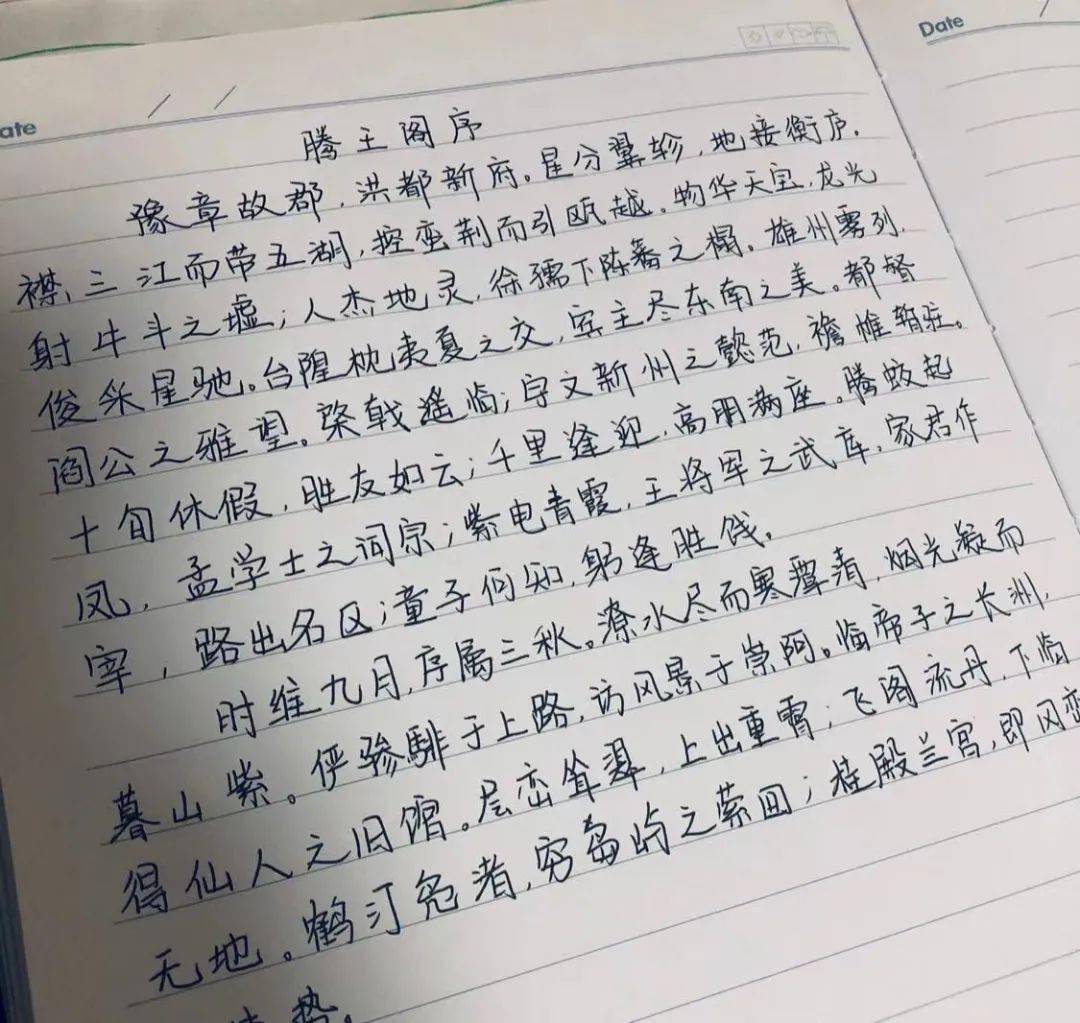 Date
ate
腾王阁序
豫章故郡，洪都新府。星分翼轸，地接衡庐，
襟三江而带五湖，控蛮荆而引瓯越。物华天宝，龙光
射牛斗之墟；人杰地灵，徐孺下陈蕃之榻。雄州雾列，
俊采星驰。台隍枕夷夏之交，宾主尽东南之美。都督
阎公之雅望，棨戟遥临；宇文新州之懿范，襜帷暂驻。
十旬休假，胜友如云；千里逢迎，高朋满座。腾蛟起
凤，孟学士之词宗；紫电青霞，王将军之武库，家君作
宰，路出名区；童子何知，躬逢胜饯，
时维九月，序属三秋。潦水尽而寒潭清，烟光凝而
暮山紫。俨骖騑于上路，访风景于崇阿。临帝子之长洲，
得仙人之旧馆。层峦耸翠，上出重霄；飞阁流丹，下临
无地。鹤汀凫渚，穷岛屿之萦回；桂殿兰宫，即冈峦
势。